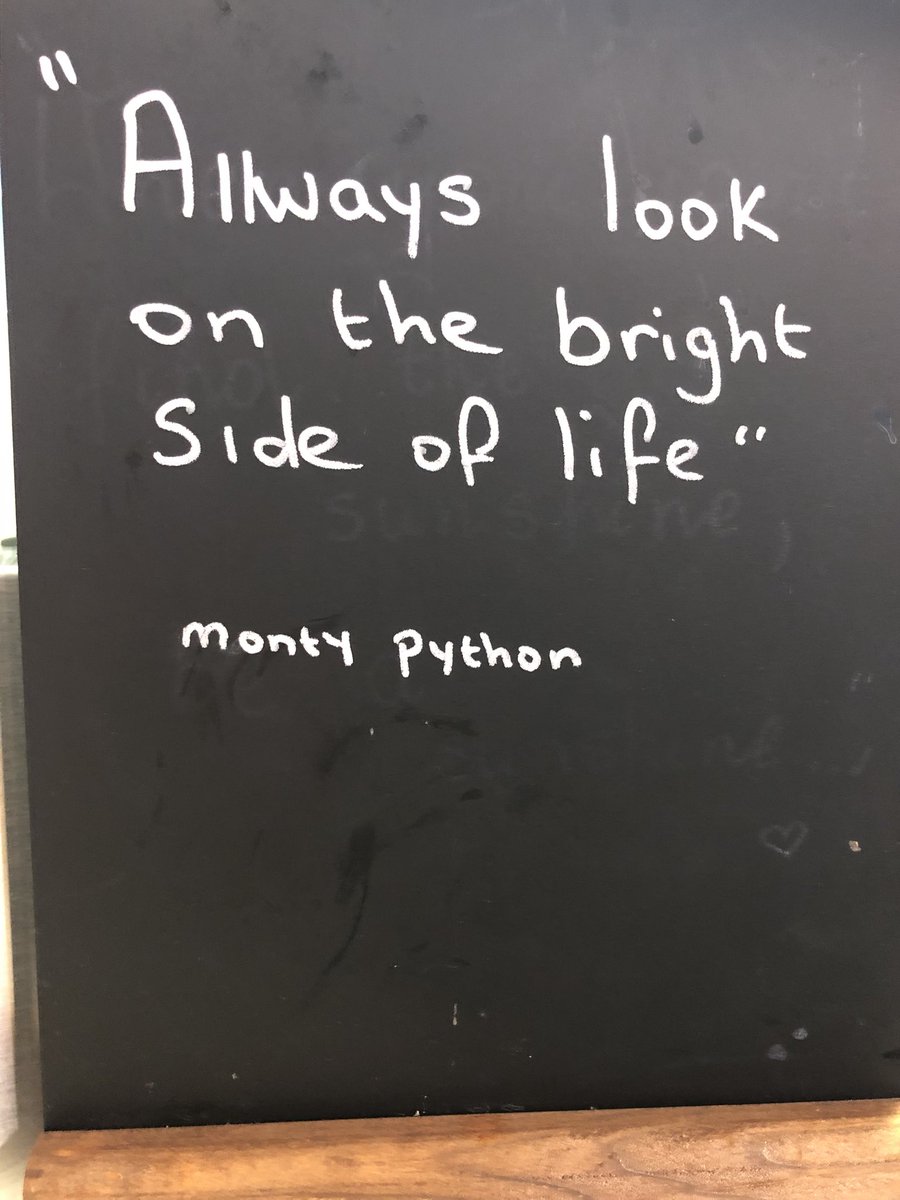 "Allways look
on the bright
side of life"
monty python
sunshine,